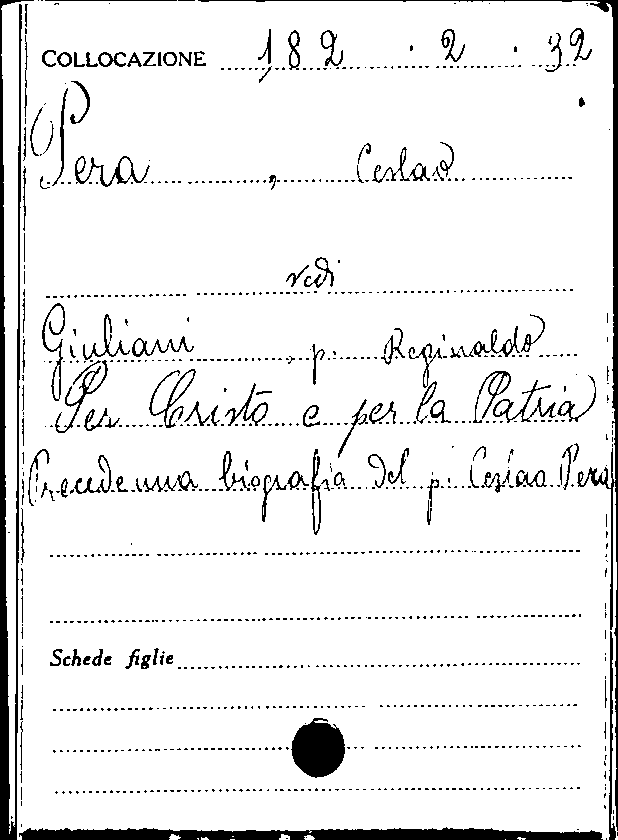 COLLOCAZIONE 182 . 2 . 32
Pera , Ceslao
vedi
Giuliani , p. Reginaldo
Per Cristo e per la Patria
Precede una biografia del p. Ceslao Pera
Schede figlie